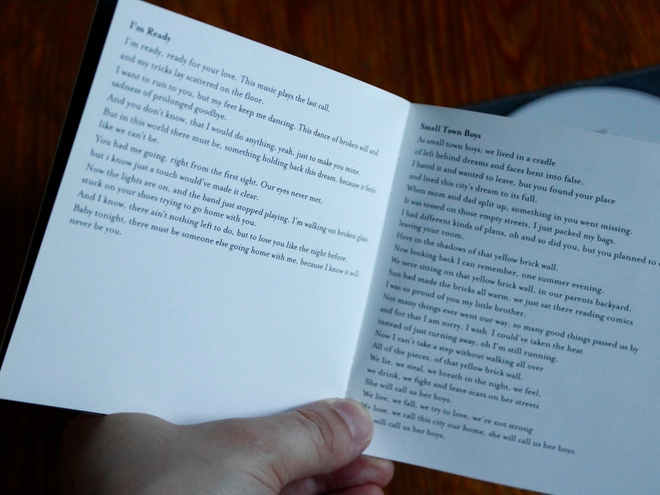 I'm Ready
I'm ready, ready for your love. This music plays the last call,
and my tricks lay scattered on the floor.
I want to run to you, but my feet keep me dancing. This dance of broken will and
sadness of prolonged goodbye.
And you don't know, that I would do anything, yeah, just to make you mine.
But in this world there must be, something holding back this dream, because it feels
like we can't be.
You had me going, right from the first sight. Our eyes never met,
but i know just a touch would've made it clear.
Now the lights are on, and the band just stopped playing. I'm walking on broken glass,
stuck on your shoes trying to go home with you.
And I know, there ain't nothing left to do, but to lose you like the night before.
Baby tonight, there must be someone else going home with me, because I know it will
never be you.
Small Town Boys
As small town boys, we lived in a cradle
of left behind dreams and faces bent into false.
I hated it and wanted to leave, but you found your place
and lived this city's dream to its full.
When mom and dad split up, something in you went missing.
It was tossed on those empty streets, I just packed my bags.
I had different kinds of plans, oh and so did you, but you planned to
leaving your room.
Here in the shadows of that yellow brick wall.
Now looking back I can remember, one summer evening.
We were sitting on that yellow brick wall, in our parents backyard.
Sun had made the bricks all warm, we just sat there reading comics
I was so proud of you my little brother.
Not many things ever went our way, so many good things passed us by
and for that I am sorry. I wish I could've taken the heat
instead of just turning away, oh I'm still running.
Now I can't take a step without walking all over
All of the pieces, of that yellow brick wall.
We lie, we steal, we breath in the night, we feel,
we drink, we fight and leave scars on her streets
She will call us her boys.
We live, we fall, we try to love, we're not strong
We lose, we call this city our home, she will call us her boys.
will call us her boys.